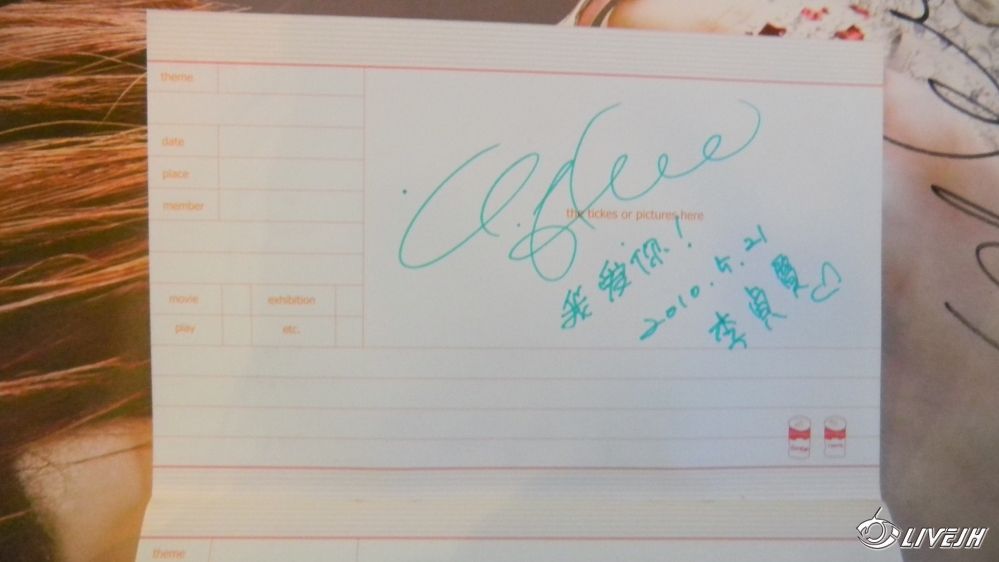 theme
date
place
member
movie exhibition
play etc.
the tickes or pictures here
我爱你!
2010.5.21
李贞贤♡
theme
LIVEJH